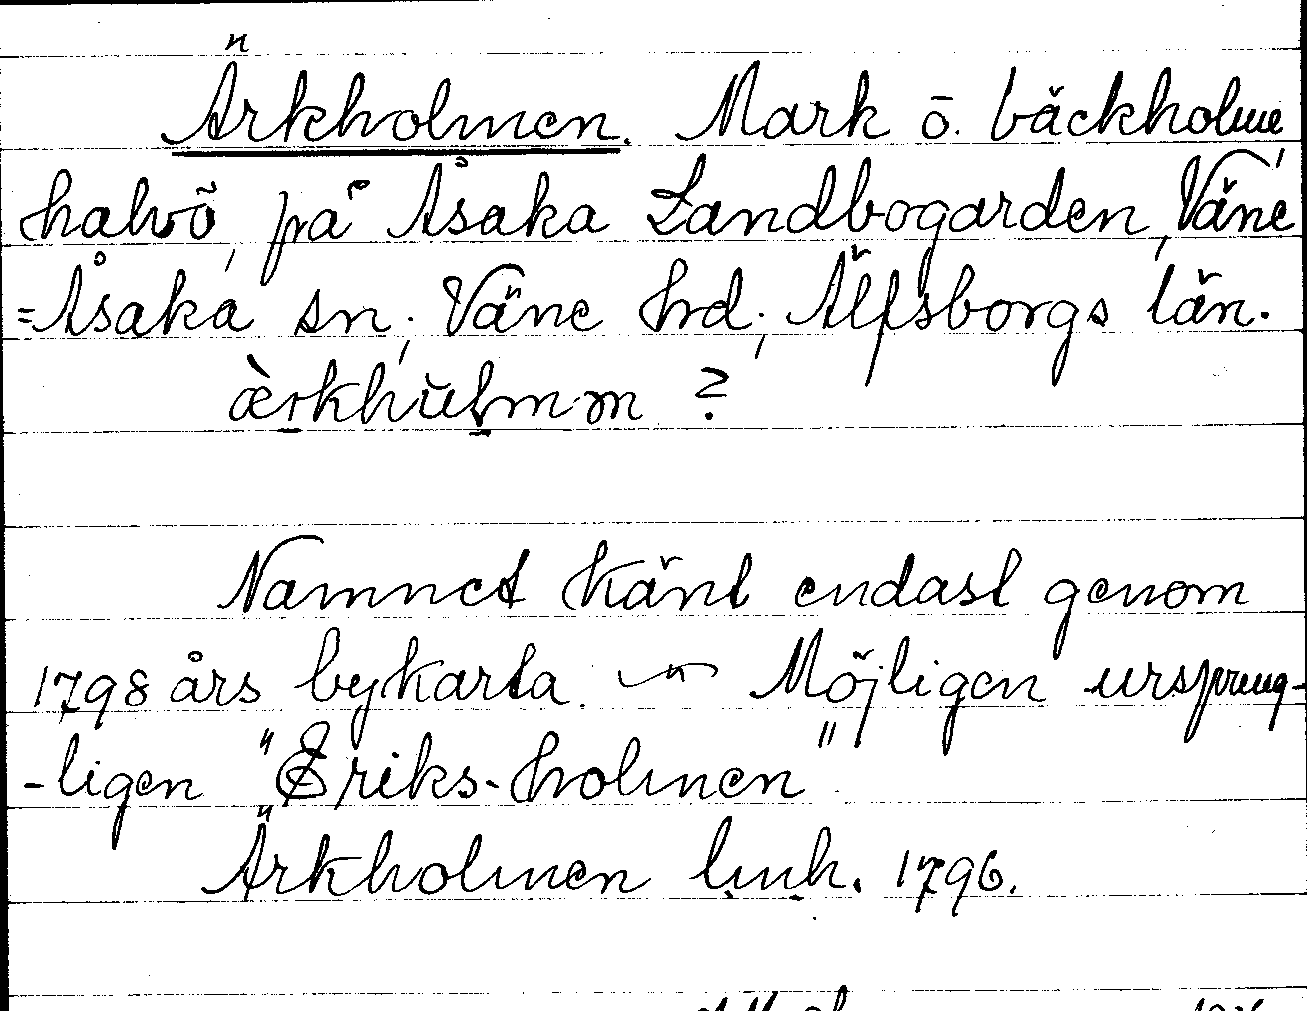 Ärkholmen. Mark o. bäckholme
halvö, på Åsaka Landbogarden, Väne
=Åsaka sn, Väne hrd, Älfsborgs län.
ærkhulmm ?
Namnet känt endast genom
1798 års bykarta. ~ Möjligen ursprung-
-ligen "Eriks-holmen".
Ärkholmen lmh. 1796.